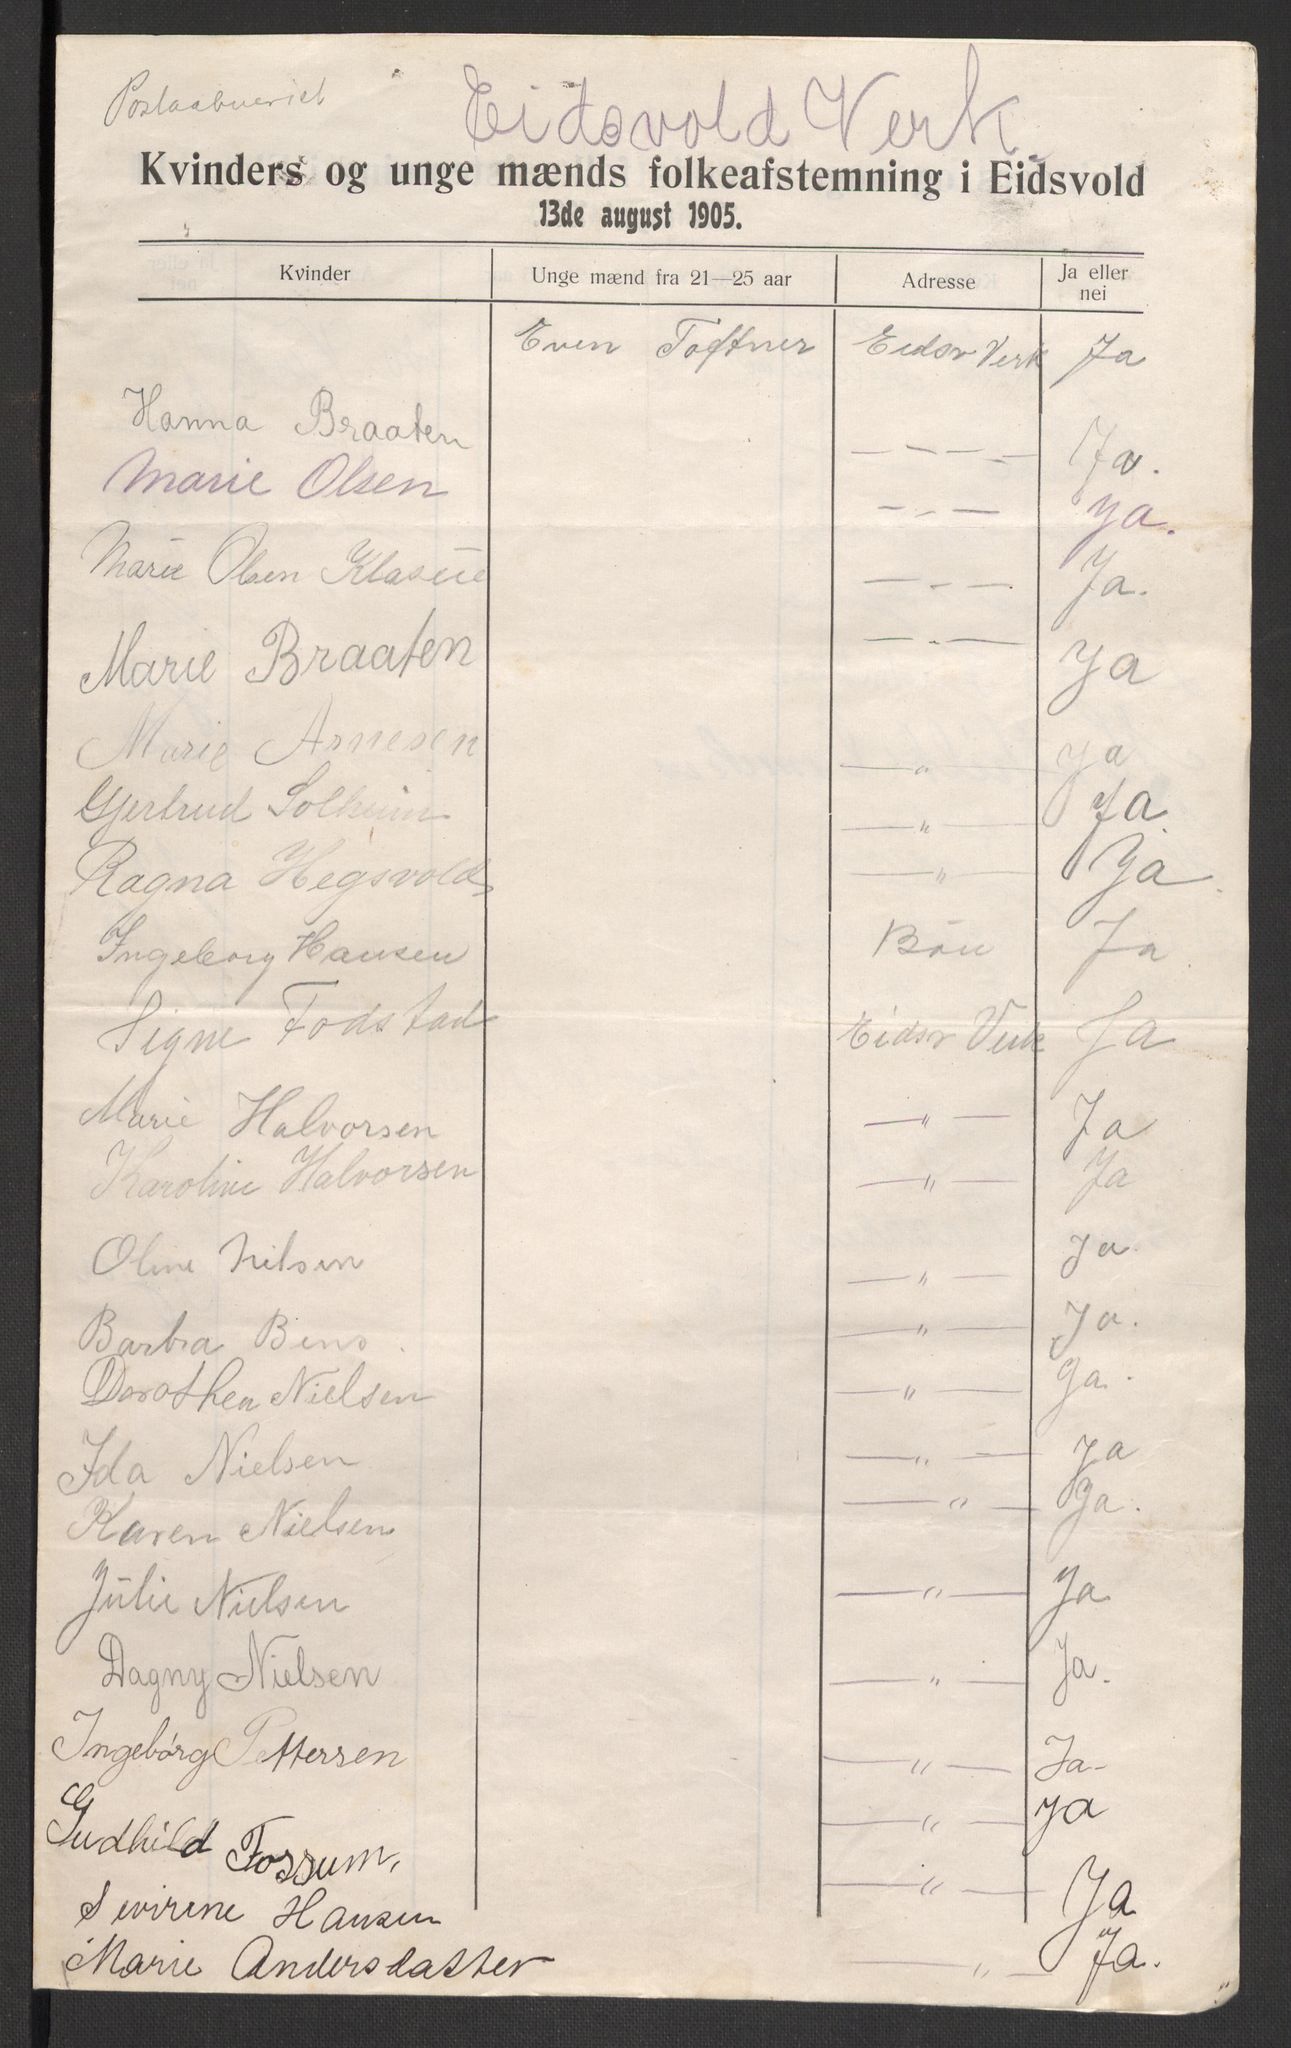 Postaabneriet
Eidsvold Verk.
Kvinders og unge mænds folkeafstemning i Eidsvold
13de august 1905.
Kvinder Unge mænd fra 21—25 aar Adresse Ja eller nei
Even Toftner Eidsv Verk Ja
Hanna Braaten — — — — Ja.
Marie Olsen — - — Ja.
Marie Olsen — - — Ja.
Marie Braaten — - — Ja
Marie Arnesen — " — Ja
Gjertrud Solheim — " — Ja.
Ragna Hegsvold — " — Ja.
Ingeborg Hansen Bön Ja
Signe Fodstad Eidsv Verk Ja
Marie Halvorsen — " — Ja
Karoline Halvorsen — " — Ja
Oline Nilsen — " — Ja.
Barbra — " — Ja.
Dorothea Nielsen — " — Ja.
Ida Nielsen — " — Ja
Karen Nielsen — " — Ja.
Julie Nielsen — " — Ja
Dagny Nielsen — " — Ja.
Ingeborg Pettersen — " — Ja-
Gudhild Fossum, — " — Ja
Sevirene Hansen — " — Ja
Marie Andersdatter — " — Ja.